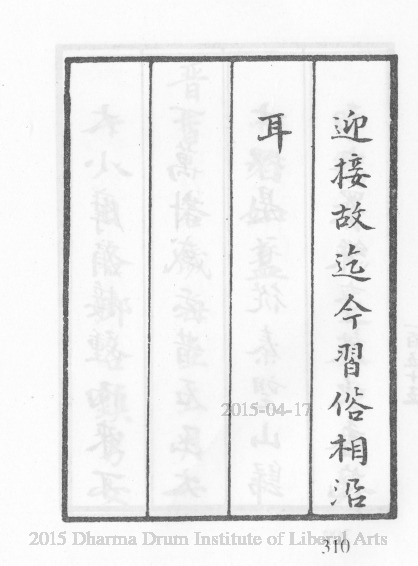 迎接故迄今習俗相沿
耳
2015-04-17
2015 Dharma Drum Institute of Liberal Arts
310